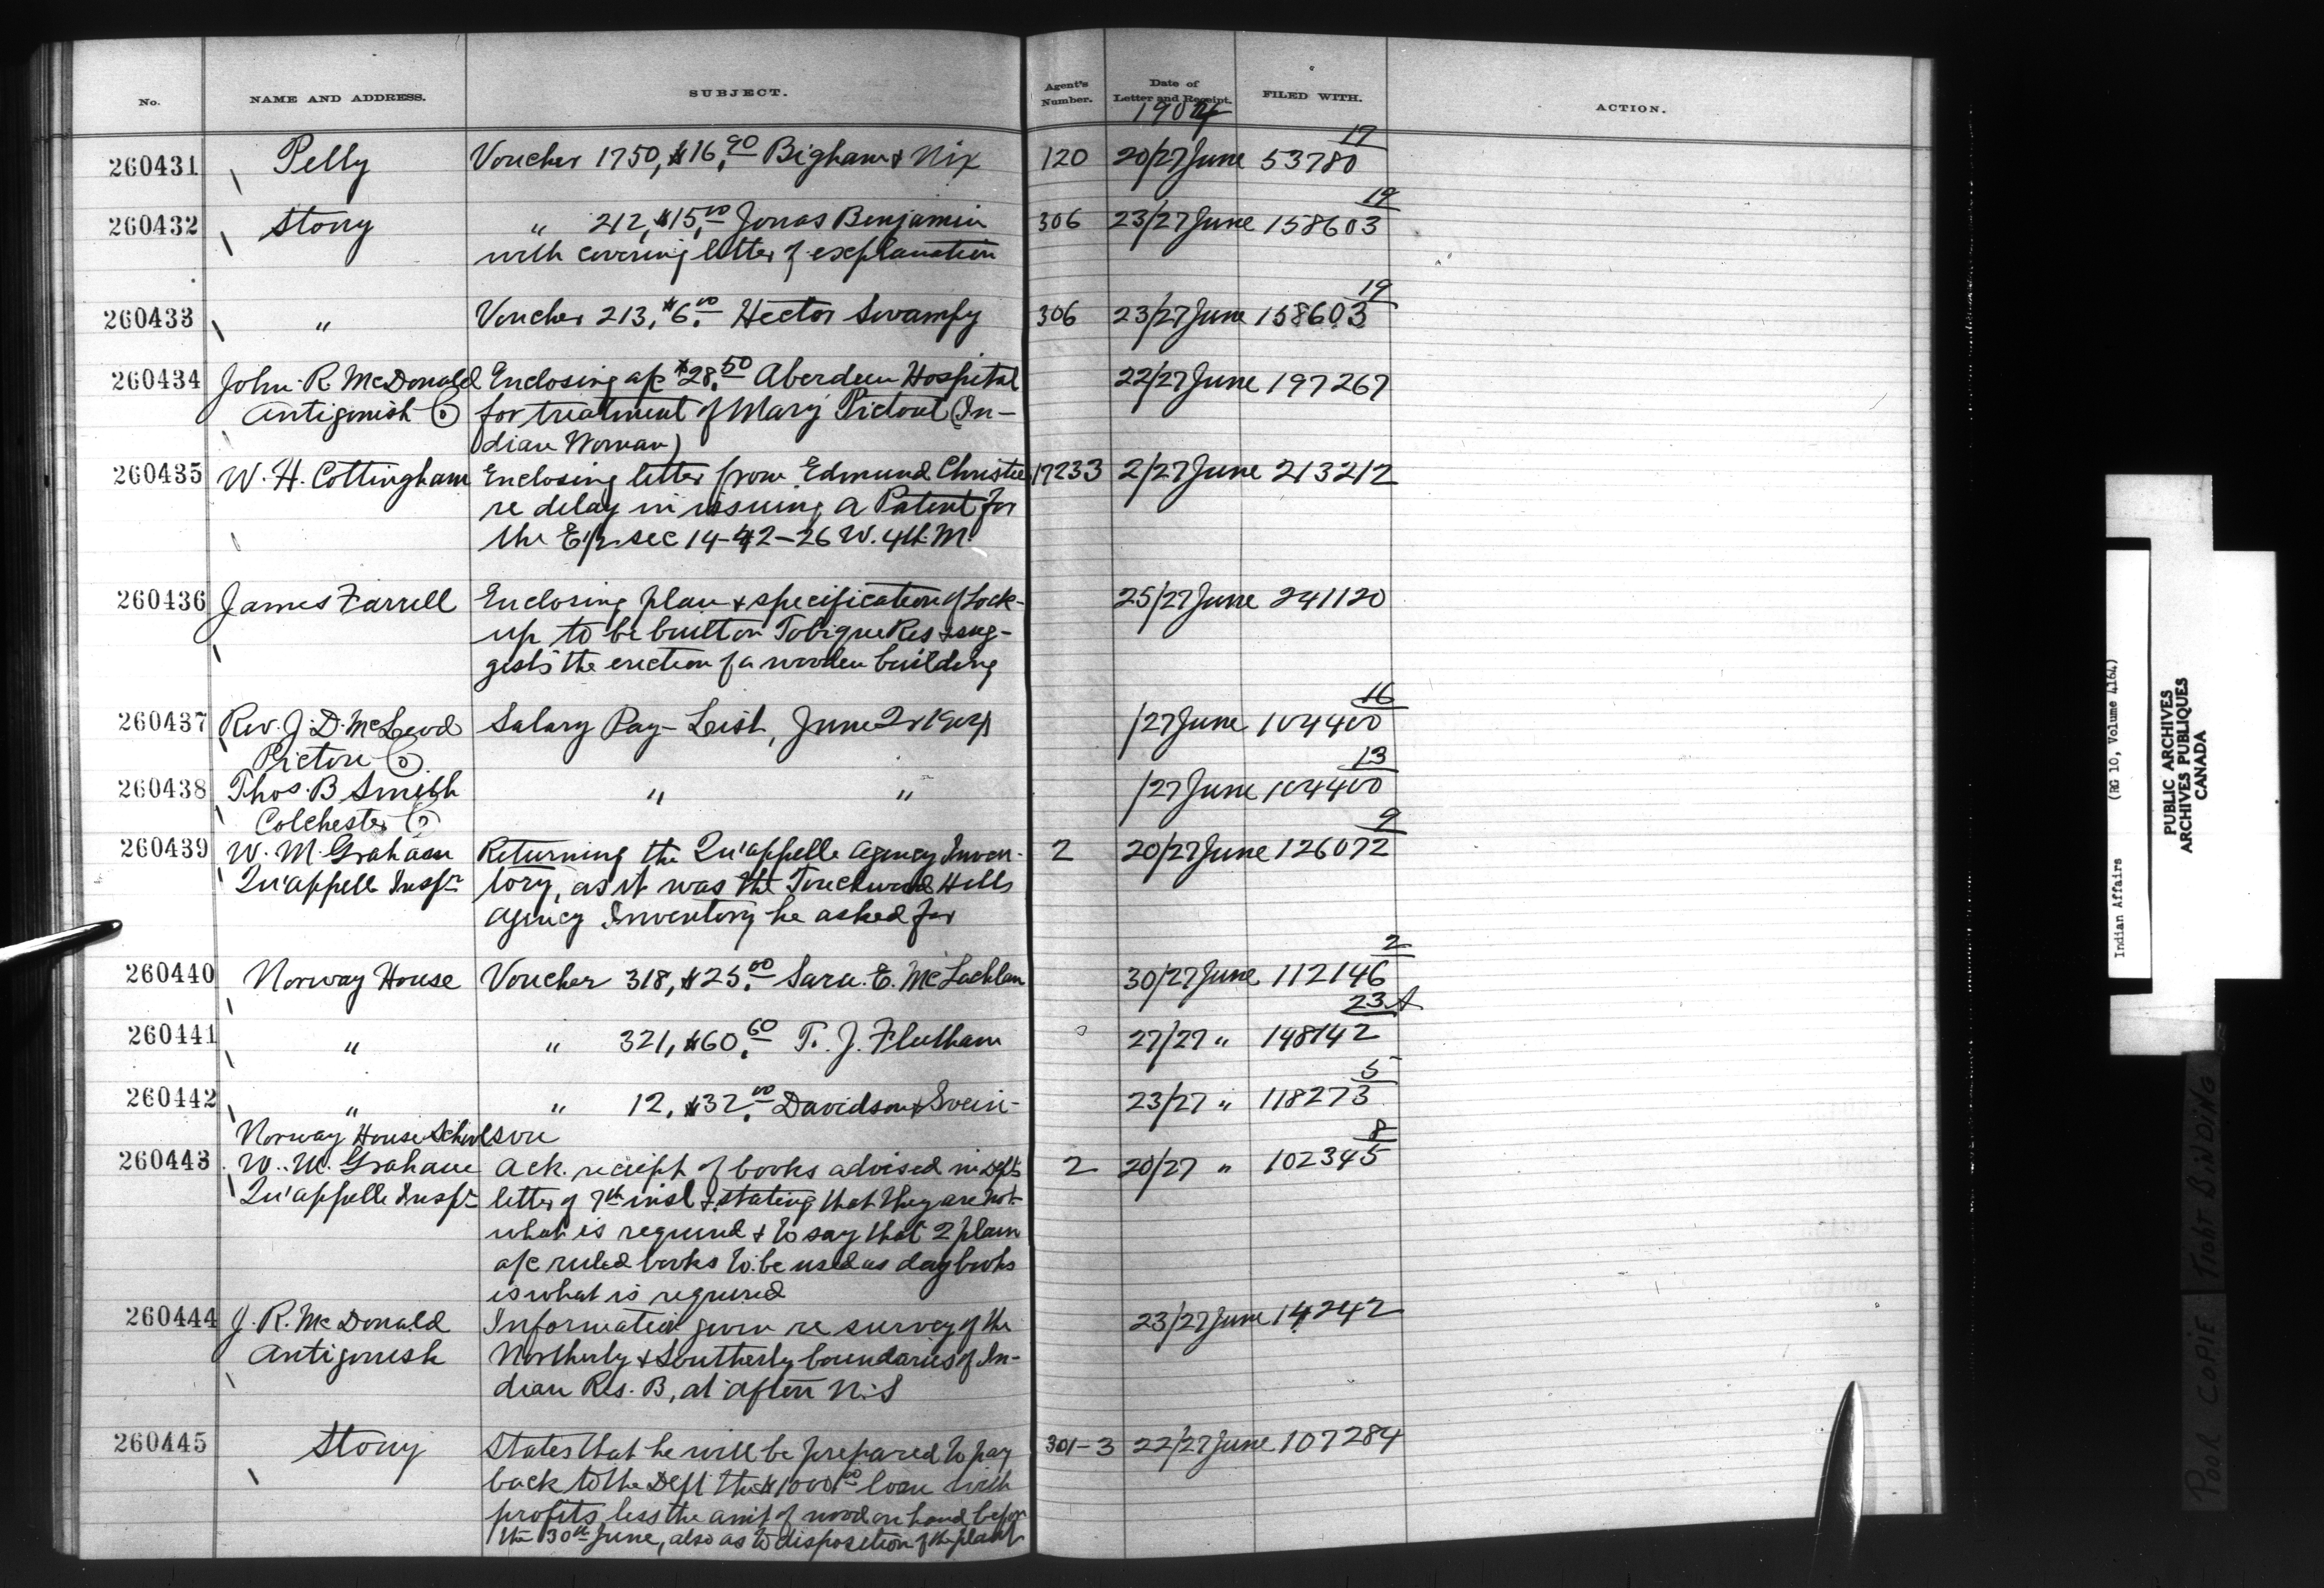 No. NAME AND ADDRESS. SUBJECT. Agent's Number. Date of Letter and Receipt. FILED WITH. ACTION.
1904
260431 Pelly Voucher 1750, $16.90 Bigham & Nix 120 20/27 June 53780 17
260432 Stony " 212, $15.00 Jonas Benjamin 306 23/27 June 158603 19
with covering letter of explanation
260433 " Voucher 213, $6.00 Hector Swampy 306 23/27 June 158603 19
260434 John R McDonald Enclosing a/c $28.50 Aberdeen Hospital 22/27 June 197267
Antigonish Co for treatment of Mary Pictout (In-
dian Woman)
260435 W. H. Cottingham Enclosing letter from Edmund Christie 17233 2/27 June 213212
re delay in issuing a Patent for
the E 1/2 sec 14-42-26 W. 4th. M.
260436 James Farrell Enclosing plan & specification of Lock- 25/27 June 241120
up to be built on Tobique Res & sug-
gests the erection of a wooden building
260437 Rev. J. D. McLeod Salary Pay-List, June 2r 1904 /27 June 104400 16
Pictou Co.
260438 Thos. B Smith " " /27 June 104400 13
Colchester Co
260439 W. M. Graham Returning the Qu'appelle Agency Inven- 2 20/27 June 126072 9
Qu'appelle Inspr tory, as it was the Touchwood Hills
Agency Inventory he asked for
260440 Norway House Voucher 318, $25.00 Sara. E. McLachlan 30/27 June 112146 2
260441 " " 321, $60.60 T. J. Fleetham 27/27 " 148142 23A
260442 " " 12, $32.00 Davidson & Svein- 23/27 " 118273 5
Norway House School son
260443 W. M. Graham Ack. reciept of books advised in Depts 2 20/27 " 102345 8
Qu'appelle Inspr letter of 7th inst & stating that they are not
what is required & to say that 2 plain
a/c ruled books to be used as day books
is what is required
260444 J. R. McDonald Information given re survey of the 23/27 June 14242
Antigonish Northerly & Southerly boundaries of In-
dian Res. B, at Afton N.S
260445 Stony States that he will be prepared to pay 301-3 22/27 June 107284
back to the Dept the $1000.00 loan with
profits less the amt of wood on hand before
the 30th June, also as to disposition of the plant
Indian Affairs (RG 10, Volume 4164)
PUBLIC ARCHIVES
ARCHIVES PUBLIQUES
CANADA
POOR COPIE TIGHT BINDING